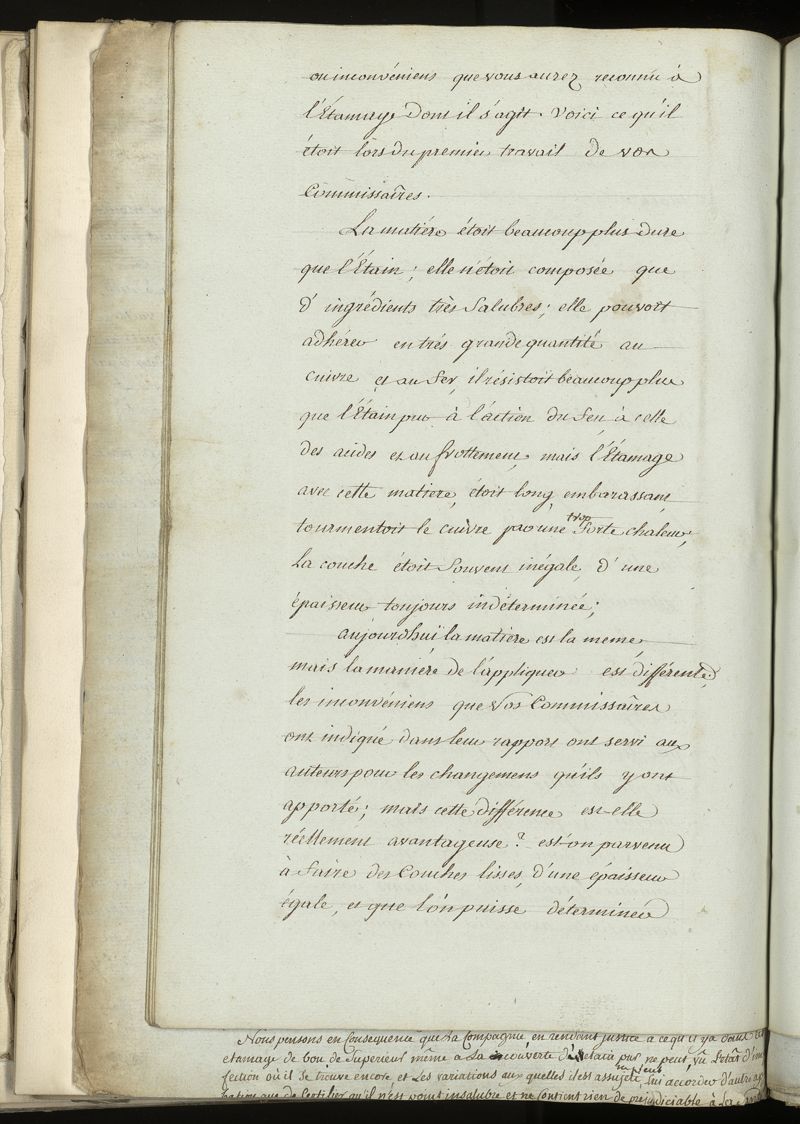 ou inconvéniens que vous aurez reconnu à
l'Étamage dont il s'agit. Voici ce qu'il
étoit lors du premier travail de vos
Commissaires.
La matiére étoit beaucoup plus dure
que l'Étain; elle n'étoit composée que
d'ingrédients très salubres; elle pouvoit
adhérer en trés grande quantité au
cuivre et au fer, il résistoit beaucoup plus
que l'Étain pur à l'action du feu à celle
des acides et au frottement, mais l'Étamage
avec cette matiere, étoit long, embarassant
tourmentoit le cuivre par une trop forte chaleur,
La couche étoit souvent inégale, d'une
épaisseur toujours indéterminée;
aujourdhuï la matiere est la meme,
mais la maniére de l'appliquer est différente,
les inconvéniens que Vos Commissaires
ont indiqué dans leur rapport ont servi aux
auteurs pour les changemens qu'ils y ont
apporté; mais cette différence est-elle
réellement avantageuse? est-on parvenu
à faire des Couches lisses, d'une épaisseur
égale, et que l'on puisse déterminée
Nous pensons en Consequence que la Compagnie, en rendant justice a ce qu'il y a dans cet
etamage de bon de Superieur même a la découverte de pur ne peut, vû l'état d'im
fection où il se trouve encore et les variations aux quelles il est assujéti, lui accorder d'autre ap
bation que de Certifier qu'il n'est point insalubre et ne Contient rien de prejudiciable à la Santé